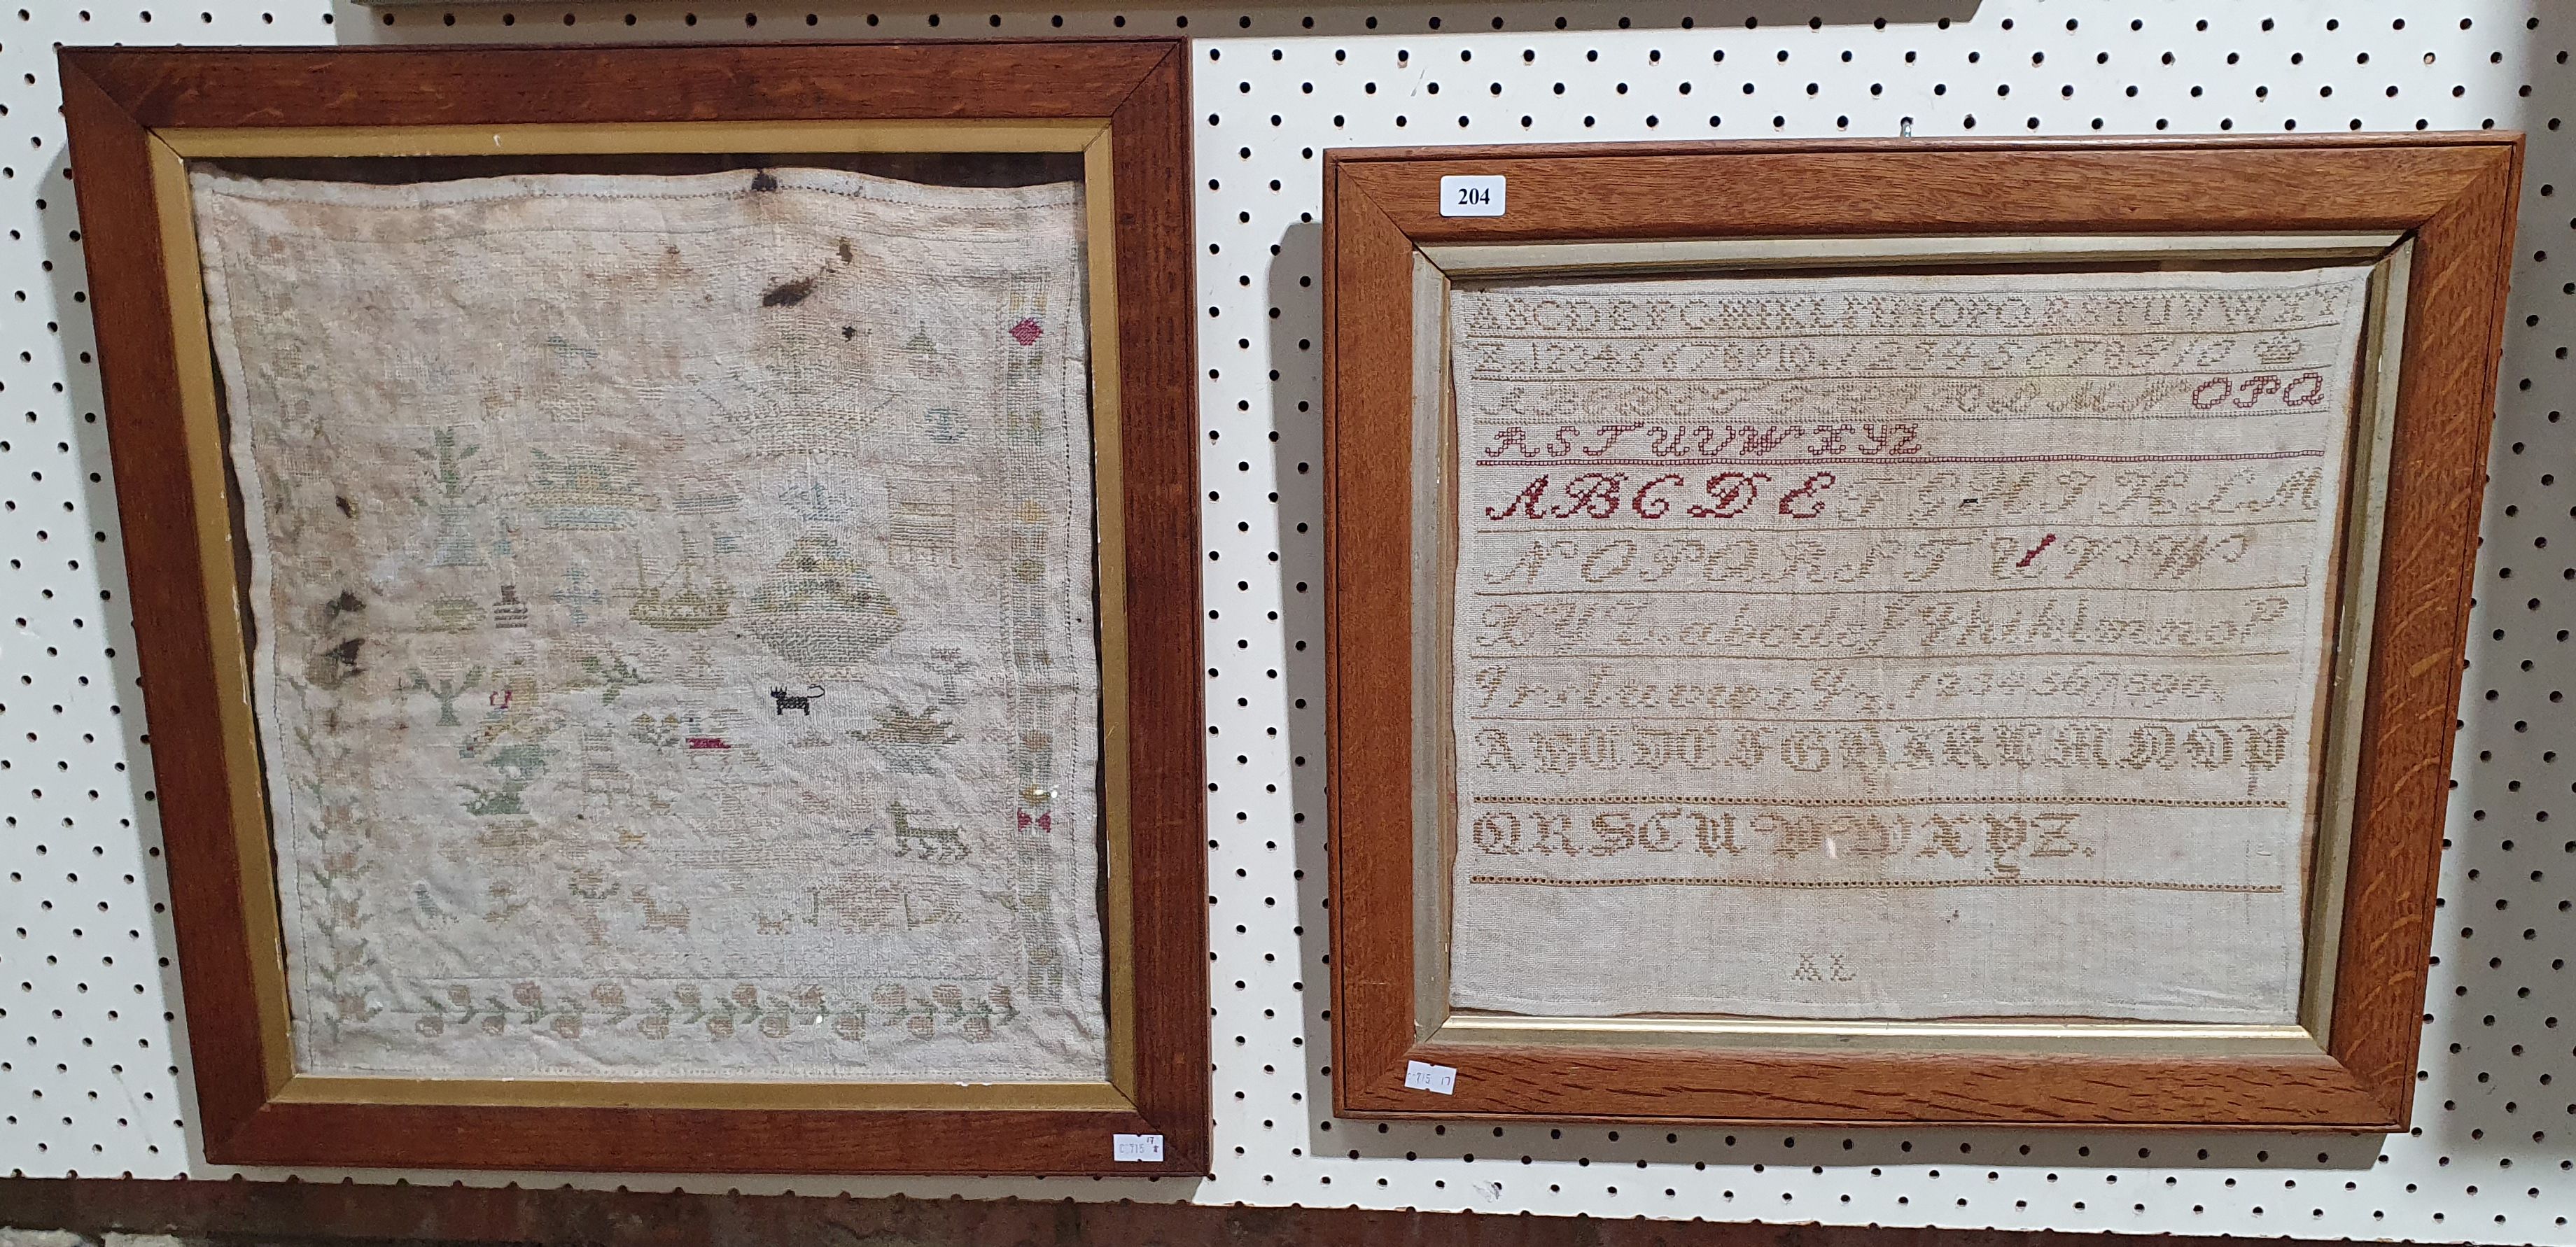 204
ABCDEFGHIKLMNOPQRSTUVWXY
Z.12345678910.12345678910
OPQ
RSTUVWXYZ
ABCDEFGHIKLM
NOPQRSTUVW
XYZ.abcdefghiklmnop
qrstuvwxyz.1234567890.
ABCDEFGHIKLMNOP
QRSTUVWXYZ.
AL
C715 17
C715 17